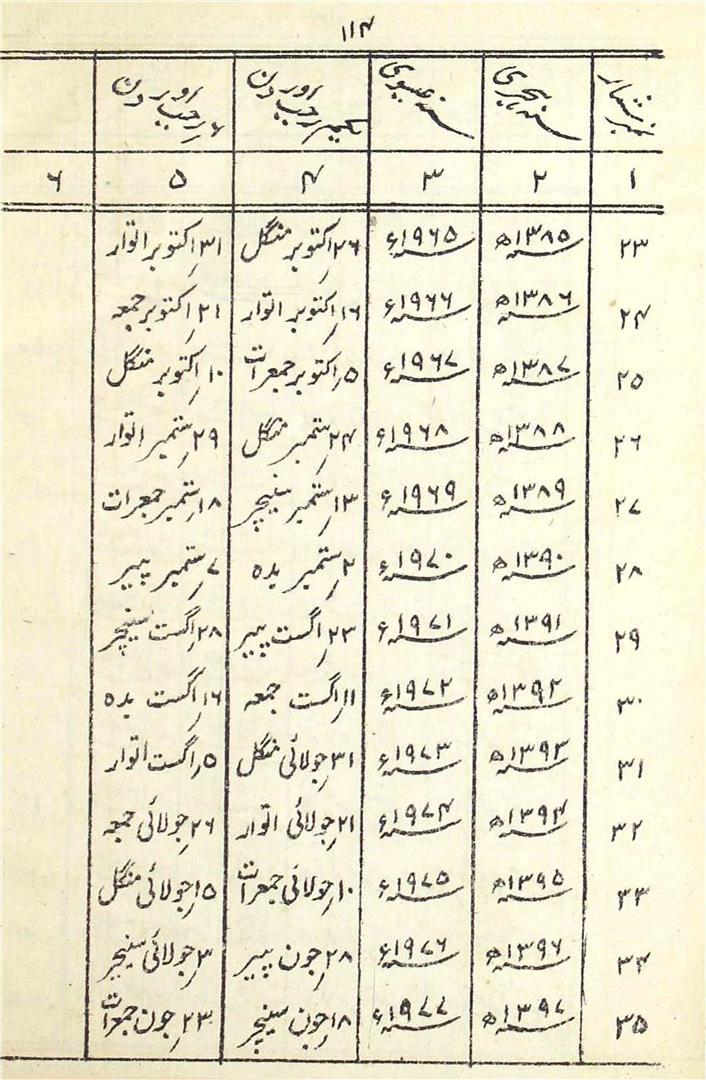 ۱۱۴
نمبر شمار سنہ ہجری سنہ عیسوی یکم رجب اور دن ۶ رجب اور دن
۱ ۲ ۳ ۴ ۵ ۶
۲۳ ۱۳۸۵ھ ۱۹۶۵ء ۲۶ اکتوبر منگل ۳۱ اکتوبر اتوار
۲۴ ۱۳۸۶ھ ۱۹۶۶ء ۱۶ اکتوبر اتوار ۲۱ اکتوبر جمعہ
۲۵ ۱۳۸۷ھ ۱۹۶۷ء ۵ اکتوبر جمعرات ۱۰ اکتوبر منگل
۲۶ ۱۳۸۸ھ ۱۹۶۸ء ۲۴ ستمبر منگل ۲۹ ستمبر اتوار
۲۷ ۱۳۸۹ھ ۱۹۶۹ء ۱۳ ستمبر سنیچر ۱۸ ستمبر جمعرات
۲۸ ۱۳۹۰ھ ۱۹۷۰ء ۲ ستمبر بدہ ۷ ستمبر پیر
۲۹ ۱۳۹۱ھ ۱۹۷۱ء ۲۳ اگست پیر ۲۸ اگست سنیچر
۳۰ ۱۳۹۲ھ ۱۹۷۲ء ۱۱ اگست جمعہ ۱۶ اگست بدہ
۳۱ ۱۳۹۳ھ ۱۹۷۳ء ۳۱ جولائی منگل ۵ اگست اتوار
۳۲ ۱۳۹۴ھ ۱۹۷۴ء ۲۱ جولائی اتوار ۲۶ جولائی جمعہ
۳۳ ۱۳۹۵ھ ۱۹۷۵ء ۱۰ جولائی جمعرات ۱۵ جولائی منگل
۳۴ ۱۳۹۶ھ ۱۹۷۶ء ۲۸ جون پیر ۳ جولائی سنیچر
۳۵ ۱۳۹۷ھ ۱۹۷۷ء ۱۸ جون سنیچر ۲۳ جون جمعرات